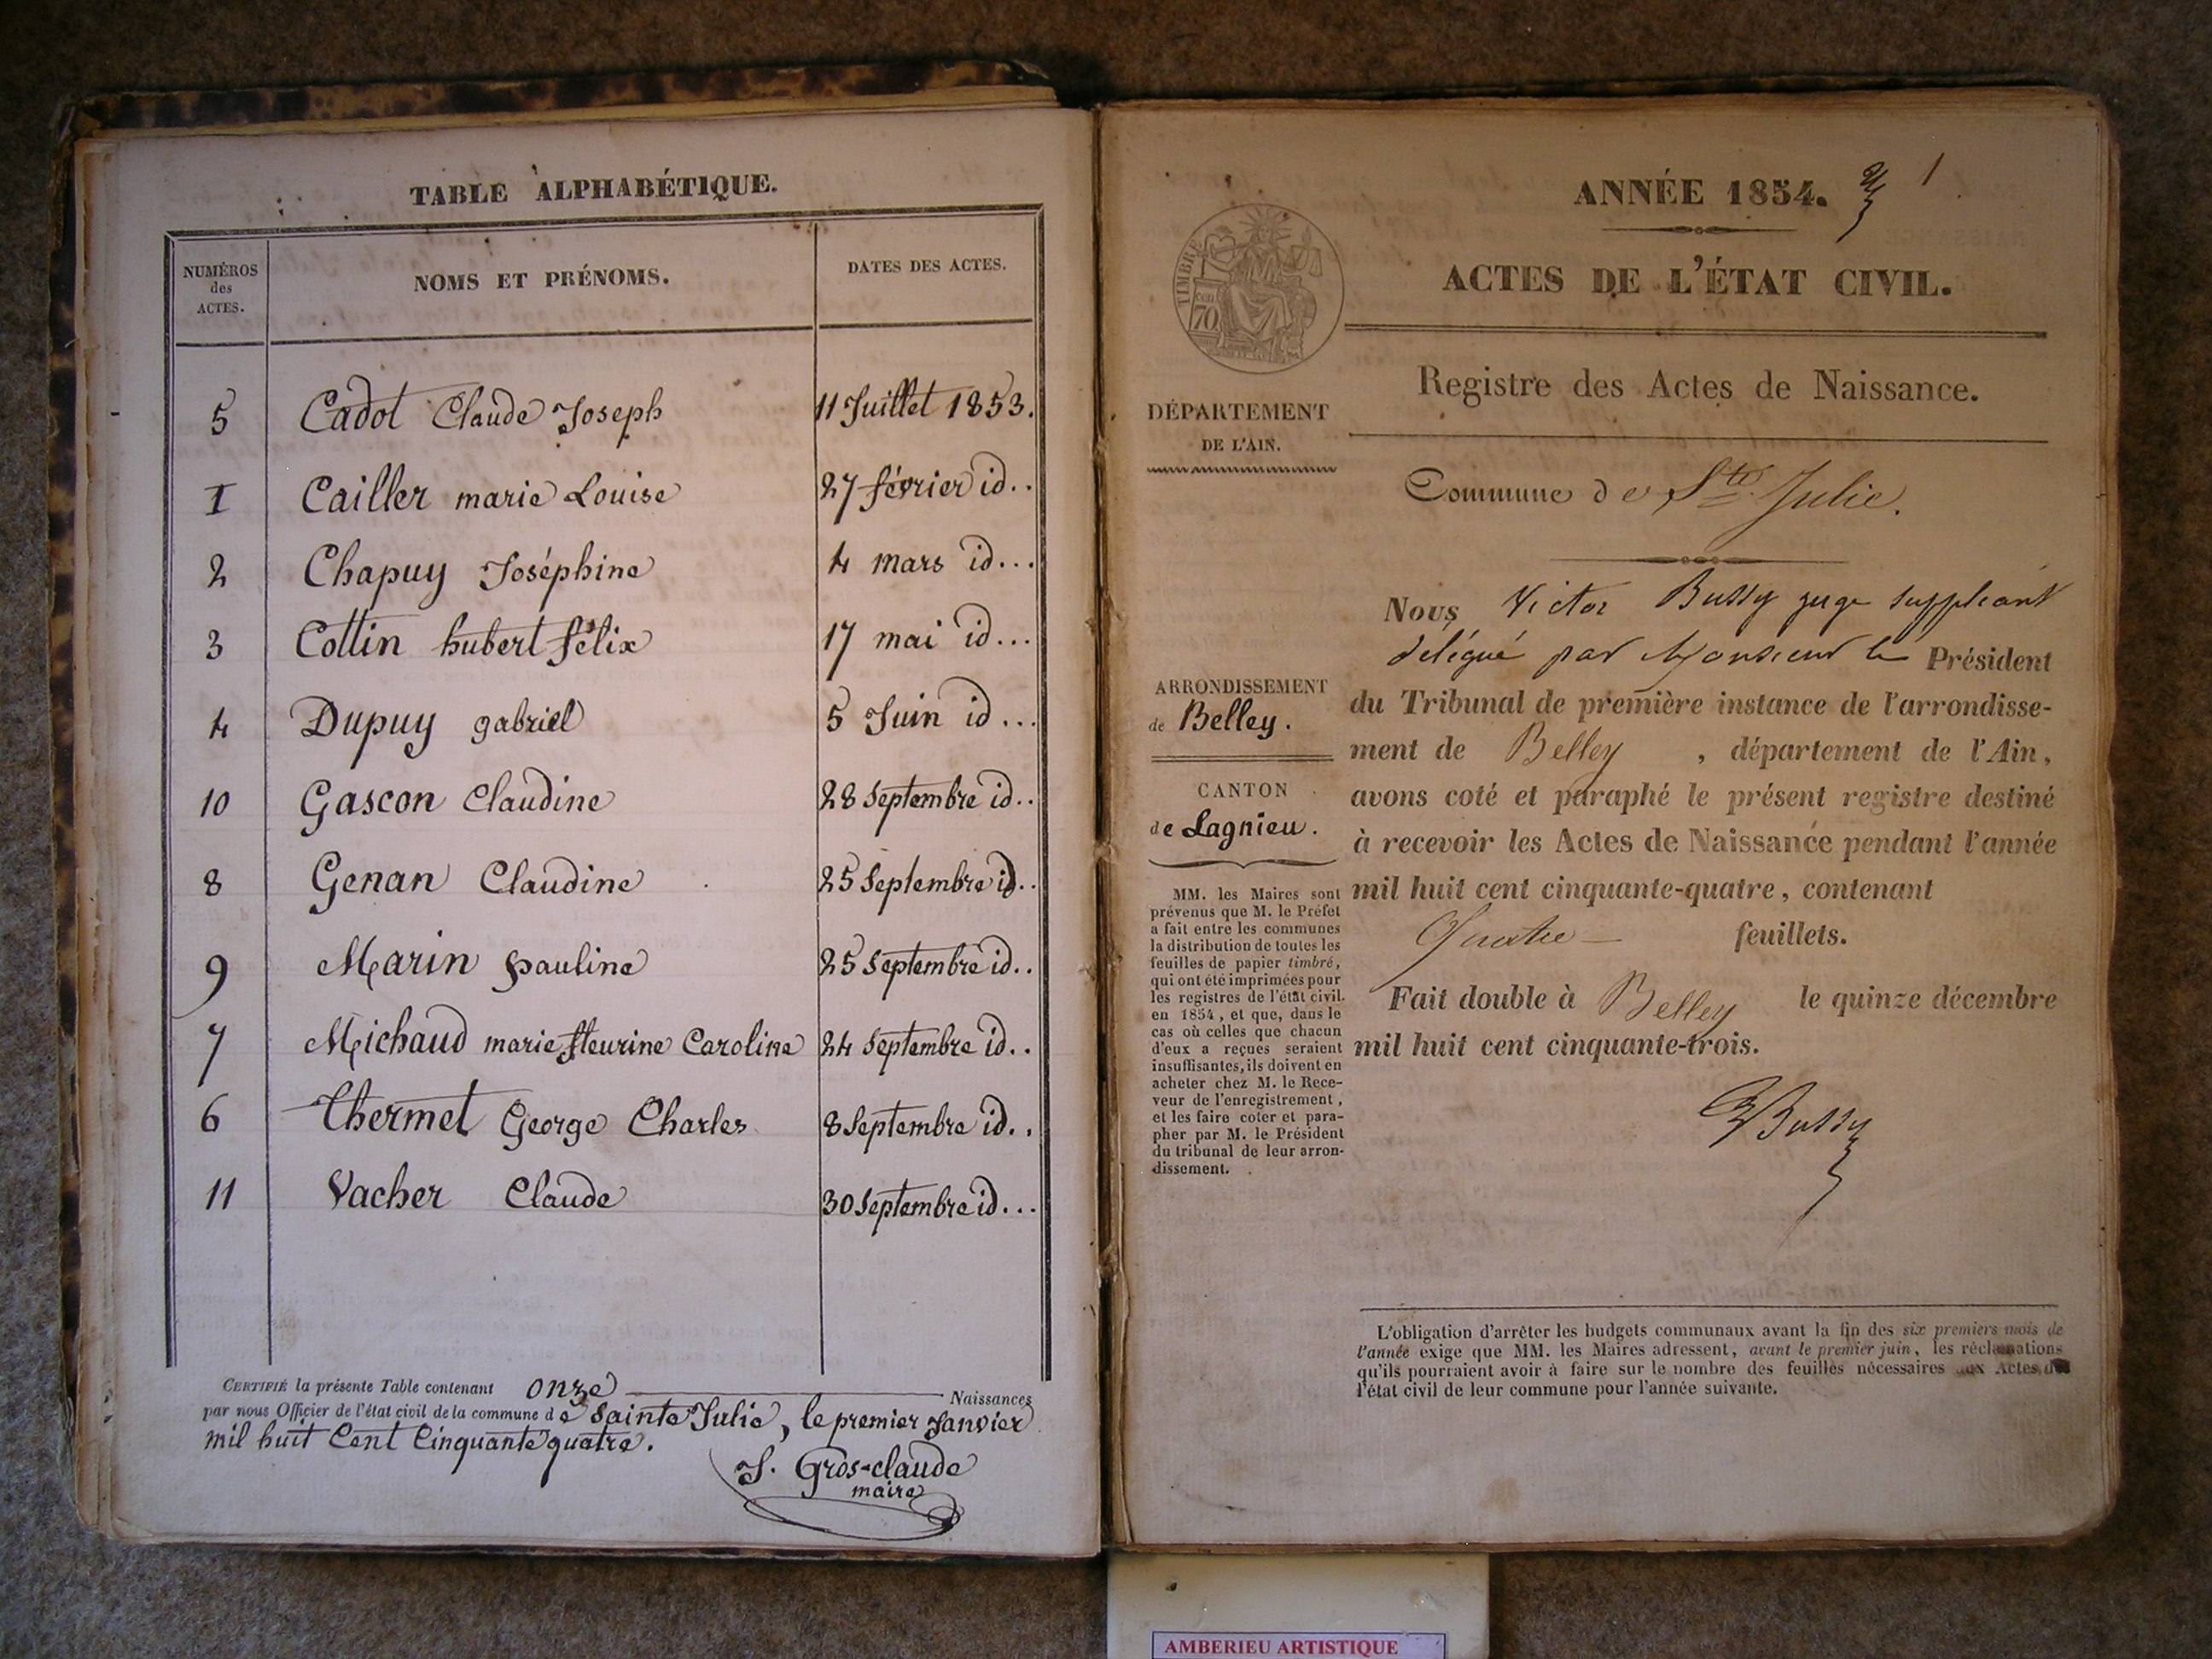 TABLE ALPHABÉTIQUE.
NUMÉROS des ACTES. NOMS ET PRÉNOMS. DATES DES ACTES.
5 Cadot Claude Joseph 11 Juillet 1853.
I Cailler marie Louise 27 février id..
2 Chapuy Joséphine 4 mars id...
3 Cottin hubert félix 17 mai id...
4 Dupuy gabriel 5 Juin id...
10 Gascon Claudine 28 Septembre id..
8 Genan Claudine 25 Septembre id..
9 Marin pauline 25 Septembre id..
7 Michaud marie fleurine Caroline 24 Septembre id..
6 Thermet George Charles 8 Septembre id..
11 Vacher Claude 30 Septembre id...
CERTIFIÉ la présente Table contenant onze Naissances
par nous Officier de l'état civil de la commune de Sainte Julie, le premier Janvier
mil huit Cent Cinquante quatre.
J. Gros-claude
maire
ANNÉE 1854. 1
ACTES DE L'ÉTAT CIVIL.
TIMBRE
70
Registre des Actes de Naissance.
DÉPARTEMENT
DE L'AIN.
Commune de Ste Julie.
ARRONDISSEMENT
de Belley.
CANTON
de Lagnieu.
MM. les Maires sont
prévenus que M. le Préfet
a fait entre les communes
la distribution de toutes les
feuilles de papier timbré,
qui ont été imprimées pour
les registres de l'état civil.
en 1854, et que, dans le
cas où celles que chacun
d'eux a reçues seraient
insuffisantes, ils doivent en
acheter chez M. le Rece-
veur de l'enregistrement,
et les faire coter et para-
pher par M. le Président
du tribunal de leur arron-
dissement.
Nous Victor Bussy juge suppléant
délégué par Monsieur le Président
du Tribunal de première instance de l'arrondisse-
ment de Belley, département de l'Ain,
avons coté et paraphé le présent registre destiné
à recevoir les Actes de Naissance pendant l'année
mil huit cent cinquante-quatre, contenant
Quatre feuillets.
Fait double à Belley le quinze décembre
mil huit cent cinquante-trois.
VBussy
L'obligation d'arrêter les budgets communaux avant la fin des six premiers mois de
l'année exige que MM. les Maires adressent, avant le premier juin, les réclamations
qu'ils pourraient avoir à faire sur le nombre des feuilles nécessaires aux Actes de
l'état civil de leur commune pour l'année suivante.
AMBERIEU ARTISTIQUE